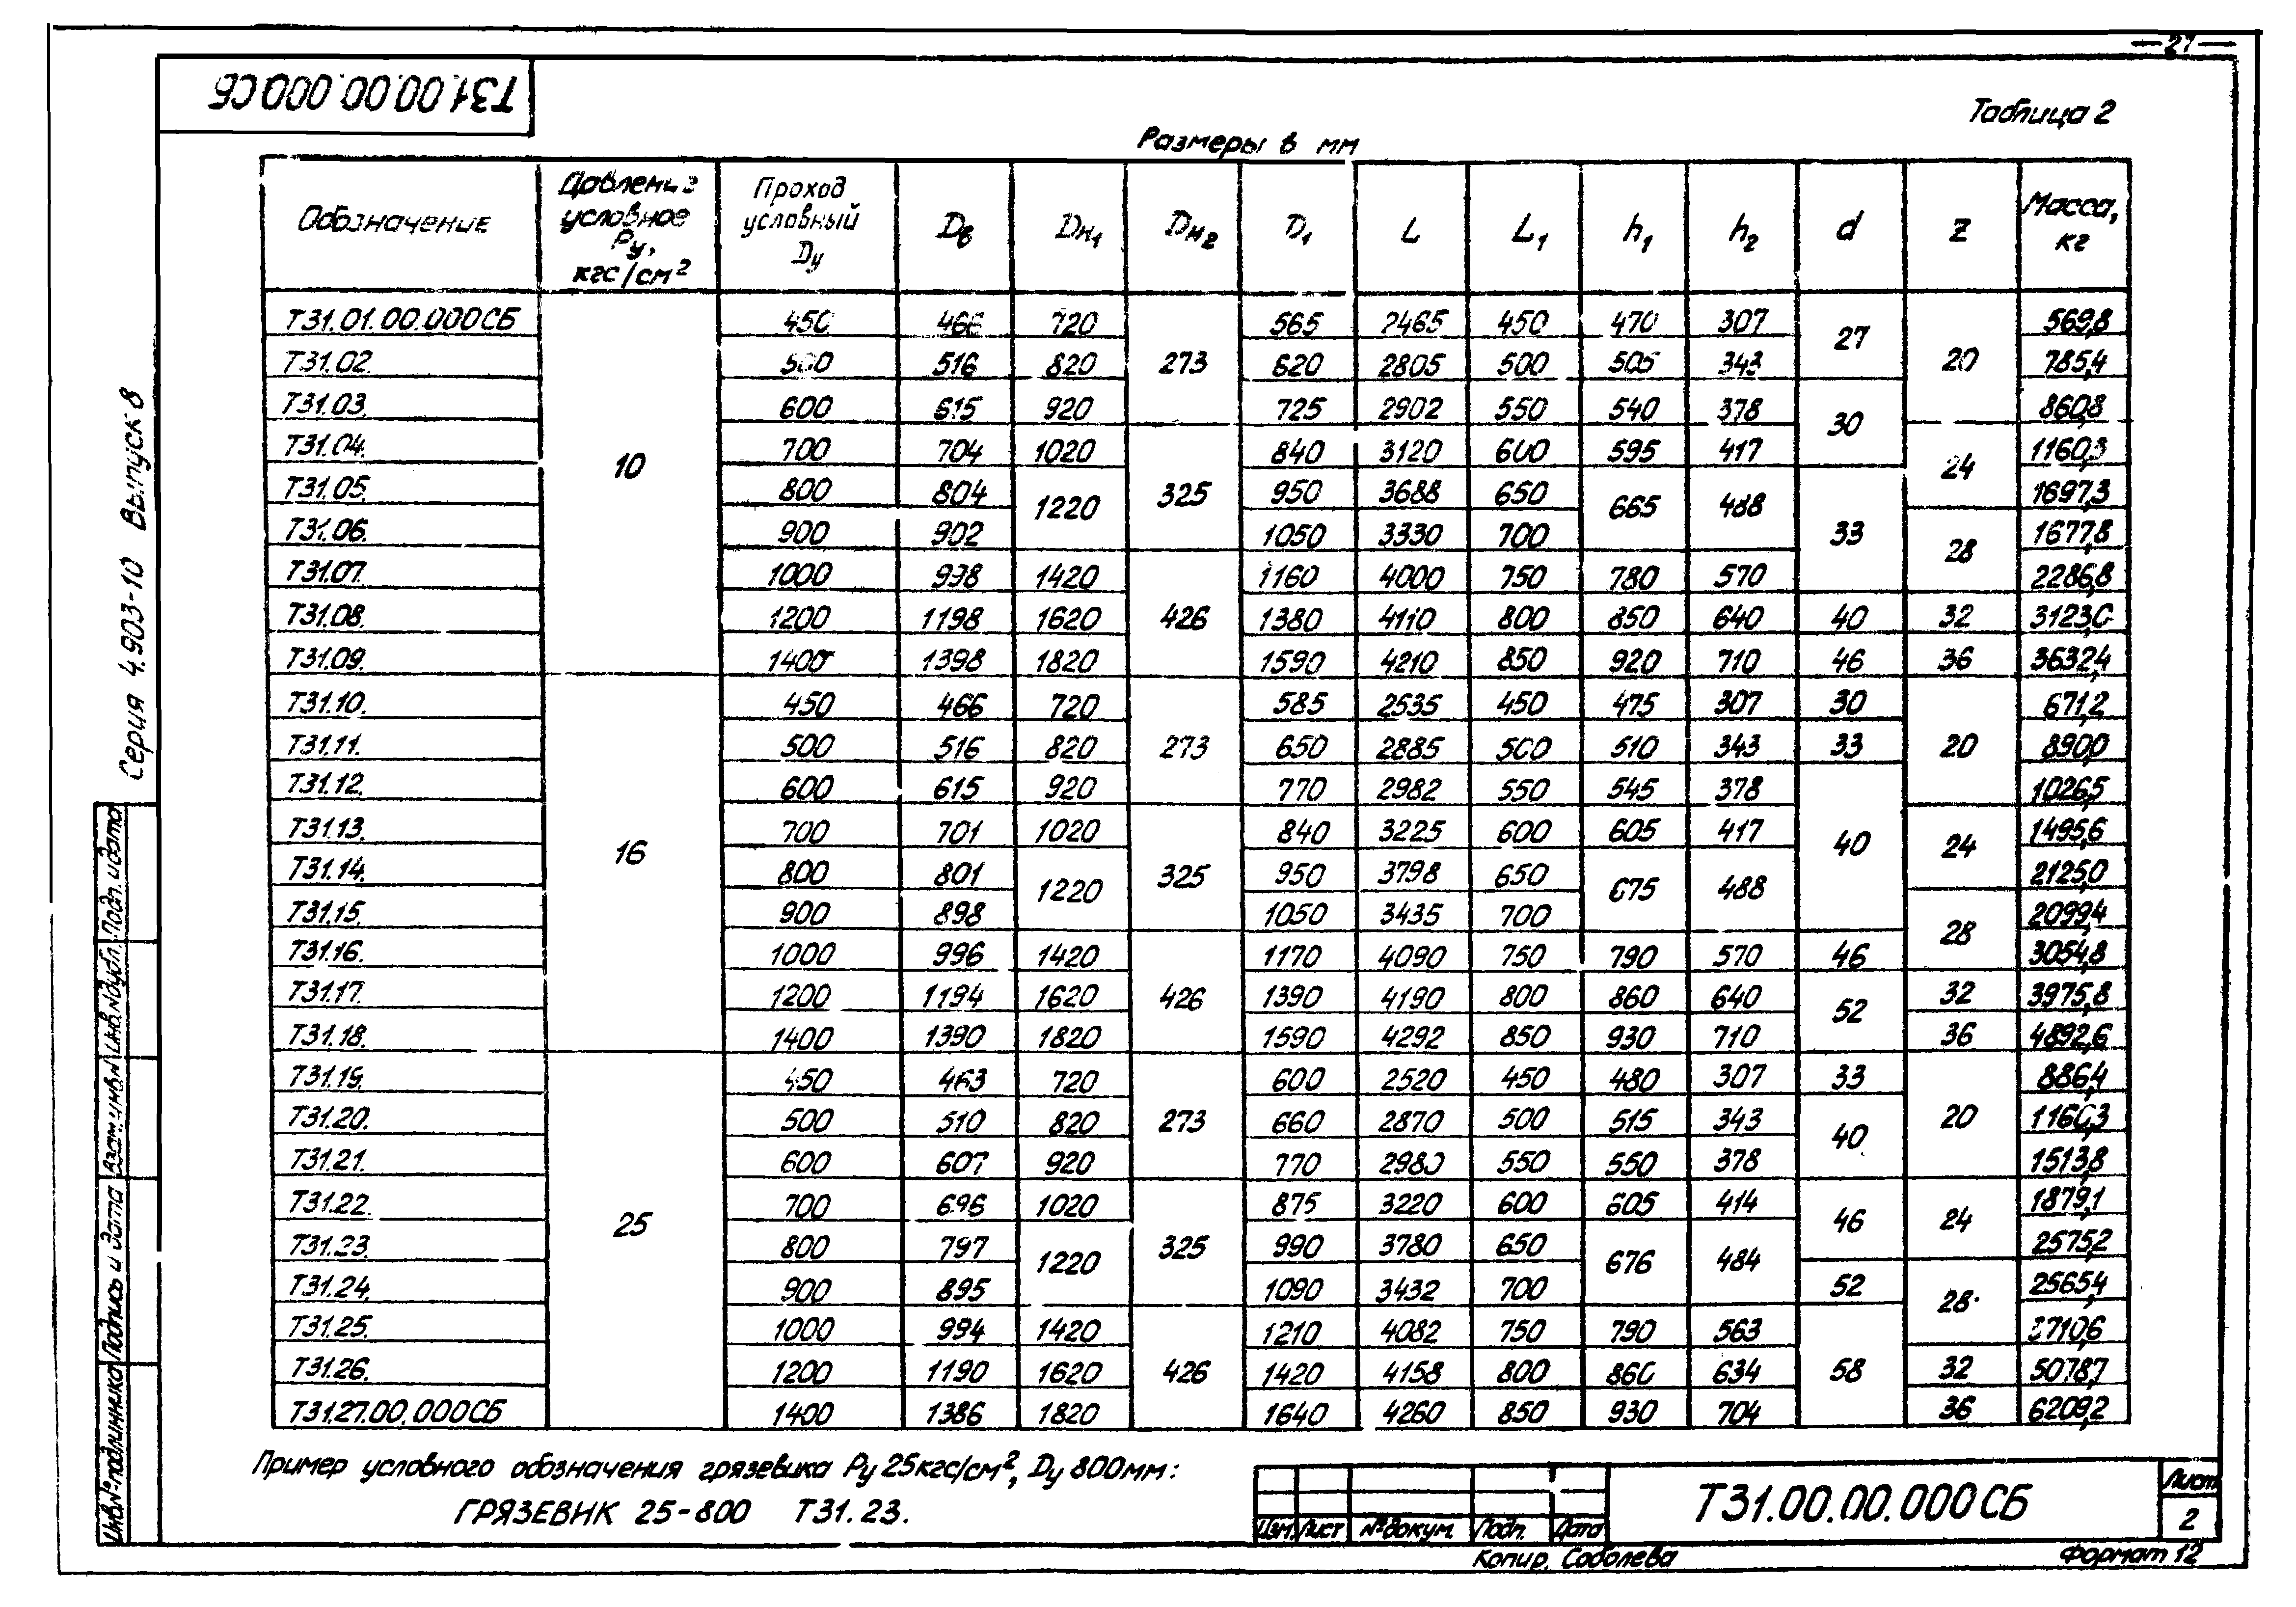 — 27 —
Т31.00.00.000СБ
Таблица 2
Размеры в мм
Обозначение | Давление условное Ру, кгс/см² | Проход условный Ду | Дв | Дн1 | Дн2 | Д1 | L | L1 | h1 | h2 | d | z | Масса, кг
Т31.01.00.000СБ | 10 | 450 | 466 | 720 | 273 | 565 | 2465 | 450 | 470 | 307 | 27 | 20 | 569,8
Т31.02. | 500 | 516 | 820 | 620 | 2805 | 500 | 505 | 343 | 785,4
Т31.03. | 600 | 615 | 920 | 725 | 2902 | 550 | 540 | 378 | 30 | 860,8
Т31.04. | 700 | 704 | 1020 | 325 | 840 | 3120 | 600 | 595 | 417 | 24 | 1160,3
Т31.05. | 800 | 804 | 1220 | 950 | 3688 | 650 | 665 | 488 | 33 | 1697,3
Т31.06. | 900 | 902 | 1050 | 3330 | 700 | 28 | 1677,8
Т31.07. | 1000 | 998 | 1420 | 426 | 1160 | 4000 | 750 | 780 | 570 | 2286,8
Т31.08. | 1200 | 1198 | 1620 | 1380 | 4110 | 800 | 850 | 640 | 40 | 32 | 3123,0
Т31.09. | 1400 | 1398 | 1820 | 1590 | 4210 | 850 | 920 | 710 | 46 | 36 | 3632,4
Т31.10. | 16 | 450 | 466 | 720 | 273 | 585 | 2535 | 450 | 475 | 307 | 30 | 20 | 671,2
Т31.11. | 500 | 516 | 820 | 650 | 2885 | 500 | 510 | 343 | 33 | 890,0
Т31.12. | 600 | 615 | 920 | 770 | 2982 | 550 | 545 | 378 | 40 | 1026,5
Т31.13. | 700 | 701 | 1020 | 325 | 840 | 3225 | 600 | 605 | 417 | 24 | 1495,6
Т31.14. | 800 | 801 | 1220 | 950 | 3798 | 650 | 675 | 488 | 2125,0
Т31.15. | 900 | 898 | 1050 | 3435 | 700 | 28 | 2099,4
Т31.16. | 1000 | 996 | 1420 | 426 | 1170 | 4090 | 750 | 790 | 570 | 46 | 3054,8
Т31.17. | 1200 | 1194 | 1620 | 1390 | 4190 | 800 | 860 | 640 | 52 | 32 | 3975,8
Т31.18. | 1400 | 1390 | 1820 | 1590 | 4292 | 850 | 930 | 710 | 36 | 4892,6
Т31.19. | 25 | 450 | 463 | 720 | 273 | 600 | 2520 | 450 | 480 | 307 | 33 | 20 | 886,4
Т31.20. | 500 | 510 | 820 | 660 | 2870 | 500 | 515 | 343 | 40 | 1160,3
Т31.21. | 600 | 607 | 920 | 770 | 2980 | 550 | 550 | 378 | 1513,8
Т31.22. | 700 | 696 | 1020 | 325 | 875 | 3220 | 600 | 605 | 414 | 46 | 24 | 1879,1
Т31.23. | 800 | 797 | 1220 | 990 | 3780 | 650 | 676 | 484 | 2575,2
Т31.24. | 900 | 895 | 1090 | 3432 | 700 | 52 | 28 | 2565,4
Т31.25. | 1000 | 994 | 1420 | 426 | 1210 | 4082 | 750 | 790 | 563 | 58 | 3710,6
Т31.26. | 1200 | 1190 | 1620 | 1420 | 4158 | 800 | 860 | 634 | 32 | 5078,7
Т31.27.00.000СБ | 1400 | 1386 | 1820 | 1640 | 4260 | 850 | 930 | 704 | 36 | 6209,2
Пример условного обозначения грязевика Ру 25кгс/см², Ду 800мм:
ГРЯЗЕВИК 25-800 Т31.23.
Изм. Лист № докум. Подп. Дата
Т31.00.00.000СБ
Лист
2
Копир. Соболева
Формат 12
Серия 4.903-10 Выпуск 8
Инв.№ подлинника Подпись и дата Взам.инв.№ Инв.№дубл. Подп. и дата